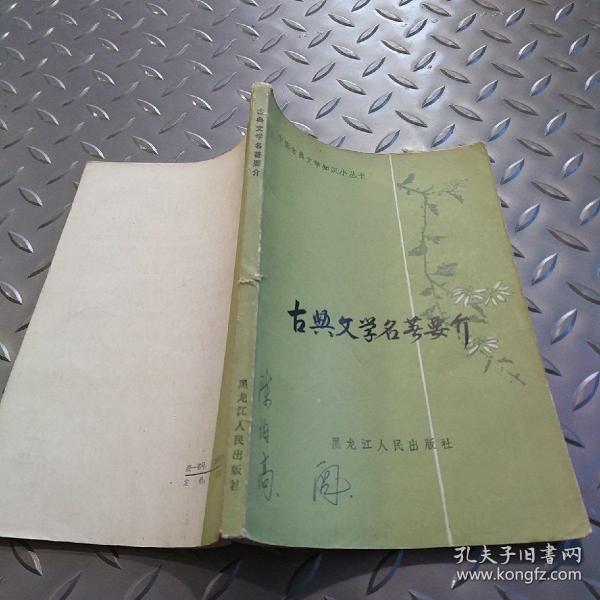 古典文学名著要介
黑龙江人民出版社
中国古典文学知识小丛书
古典文学名著要介
黑龙江人民出版社
统一书号
定价
孔夫子旧书网
www.kongfz.com